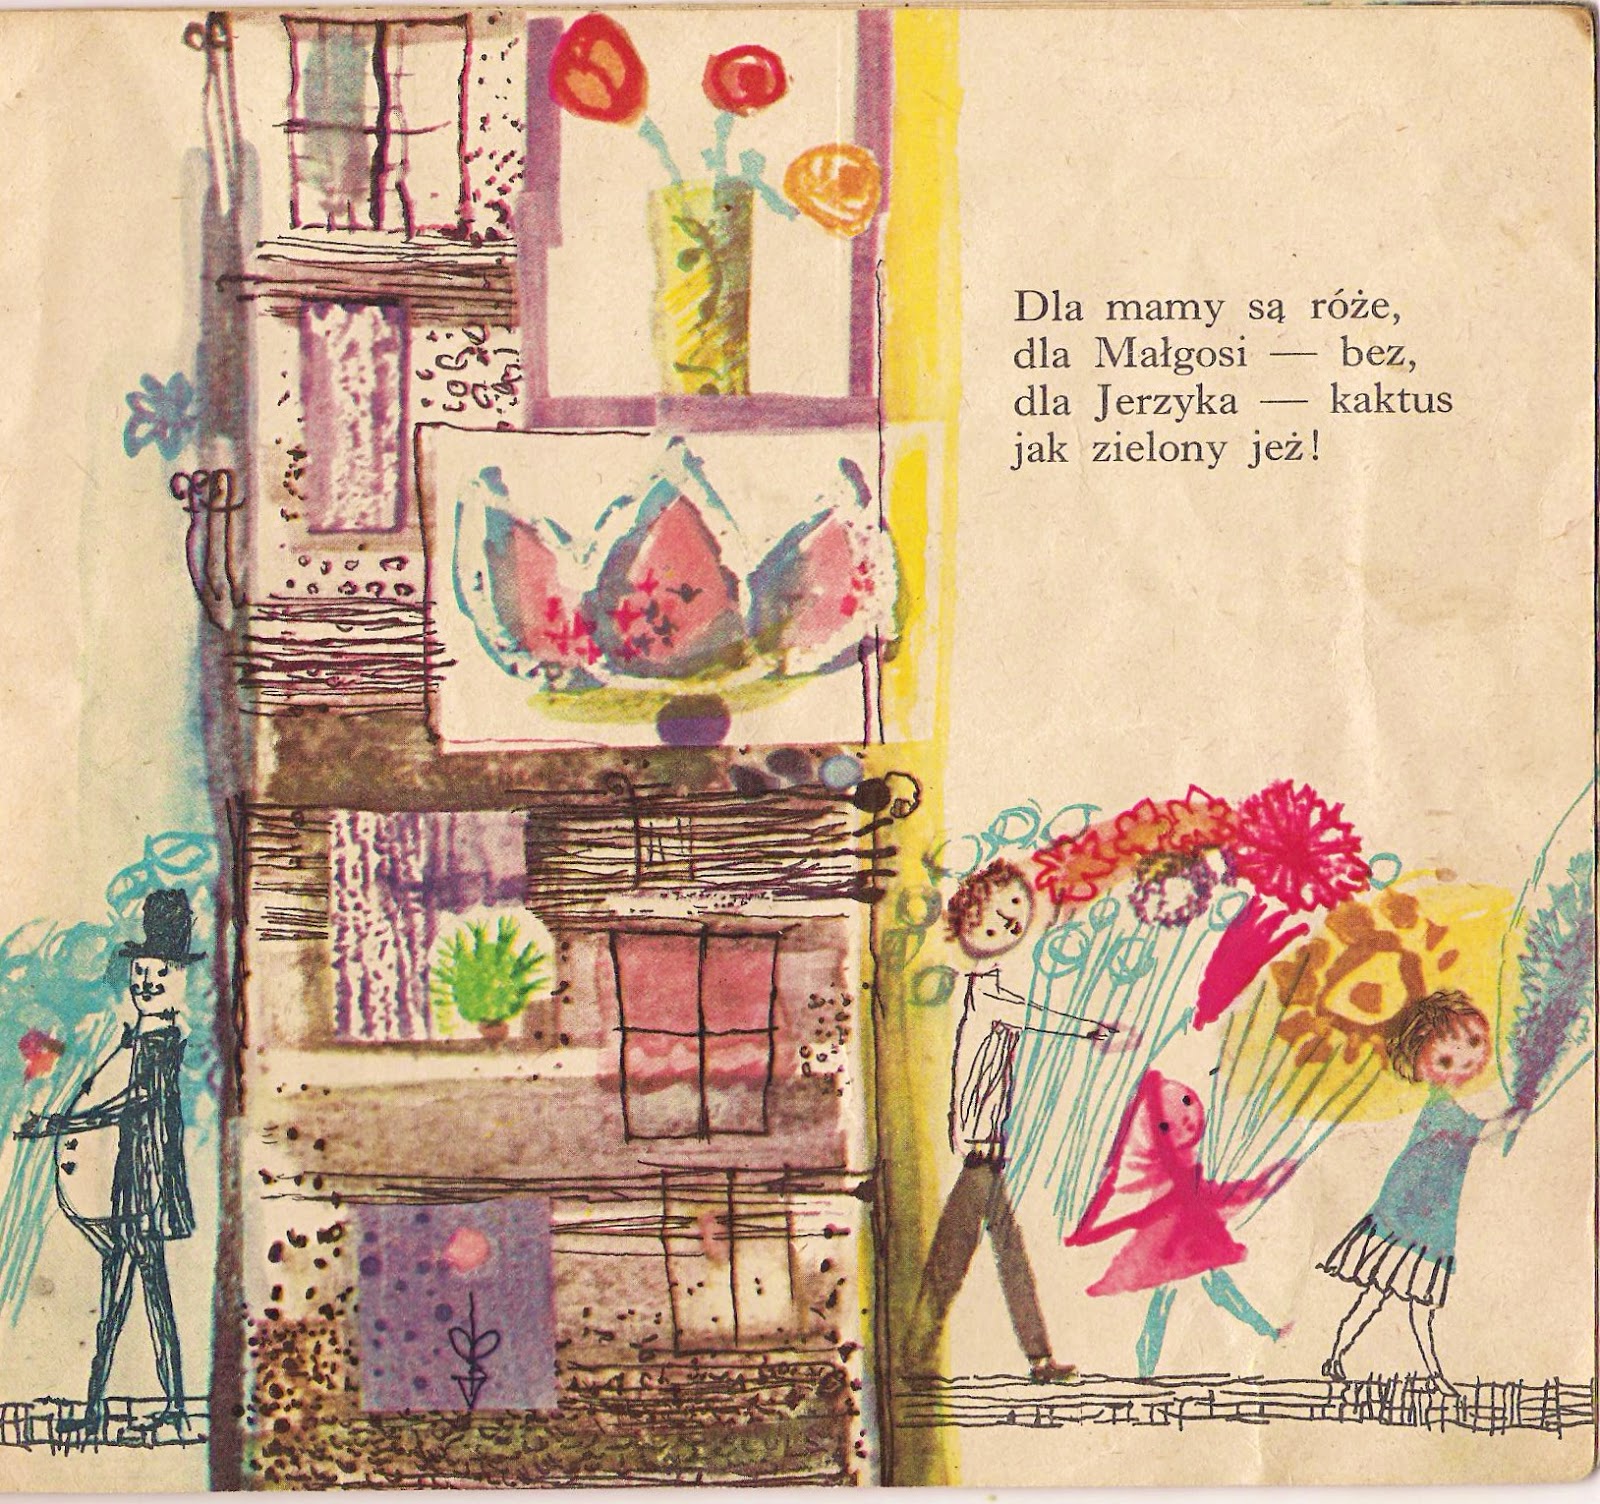 Dla mamy są róże,
dla Małgosi — bez,
dla Jerzyka — kaktus
jak zielony jeż!